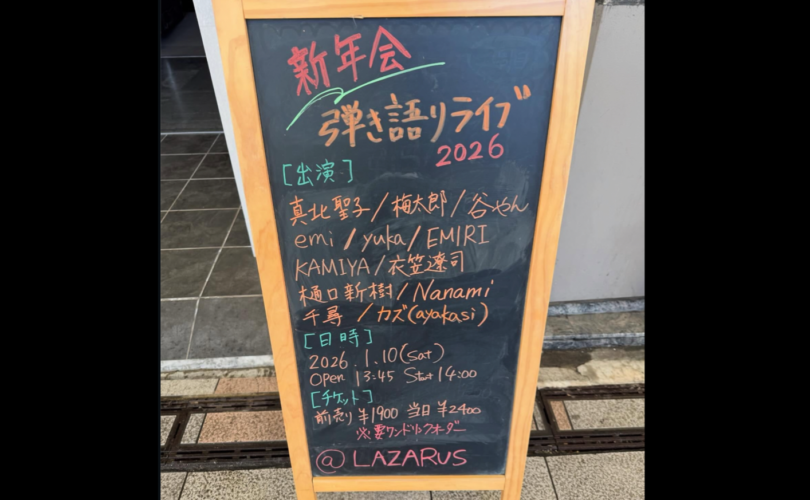 新年会
弾き語りライブ
2026
[出演]
真北聖子/梅太郎/谷やん
emi/yuka/EMIRI
KAMIYA/衣笠遼司
樋口新樹/Nanami
千尋/カズ(ayakasi)
[日時]
2026.1.10(Sat)
Open 13:45 Start 14:00
[チケット]
前売り¥1900 当日¥2400
※要ワンドリンクオーダー
@LAZARUS